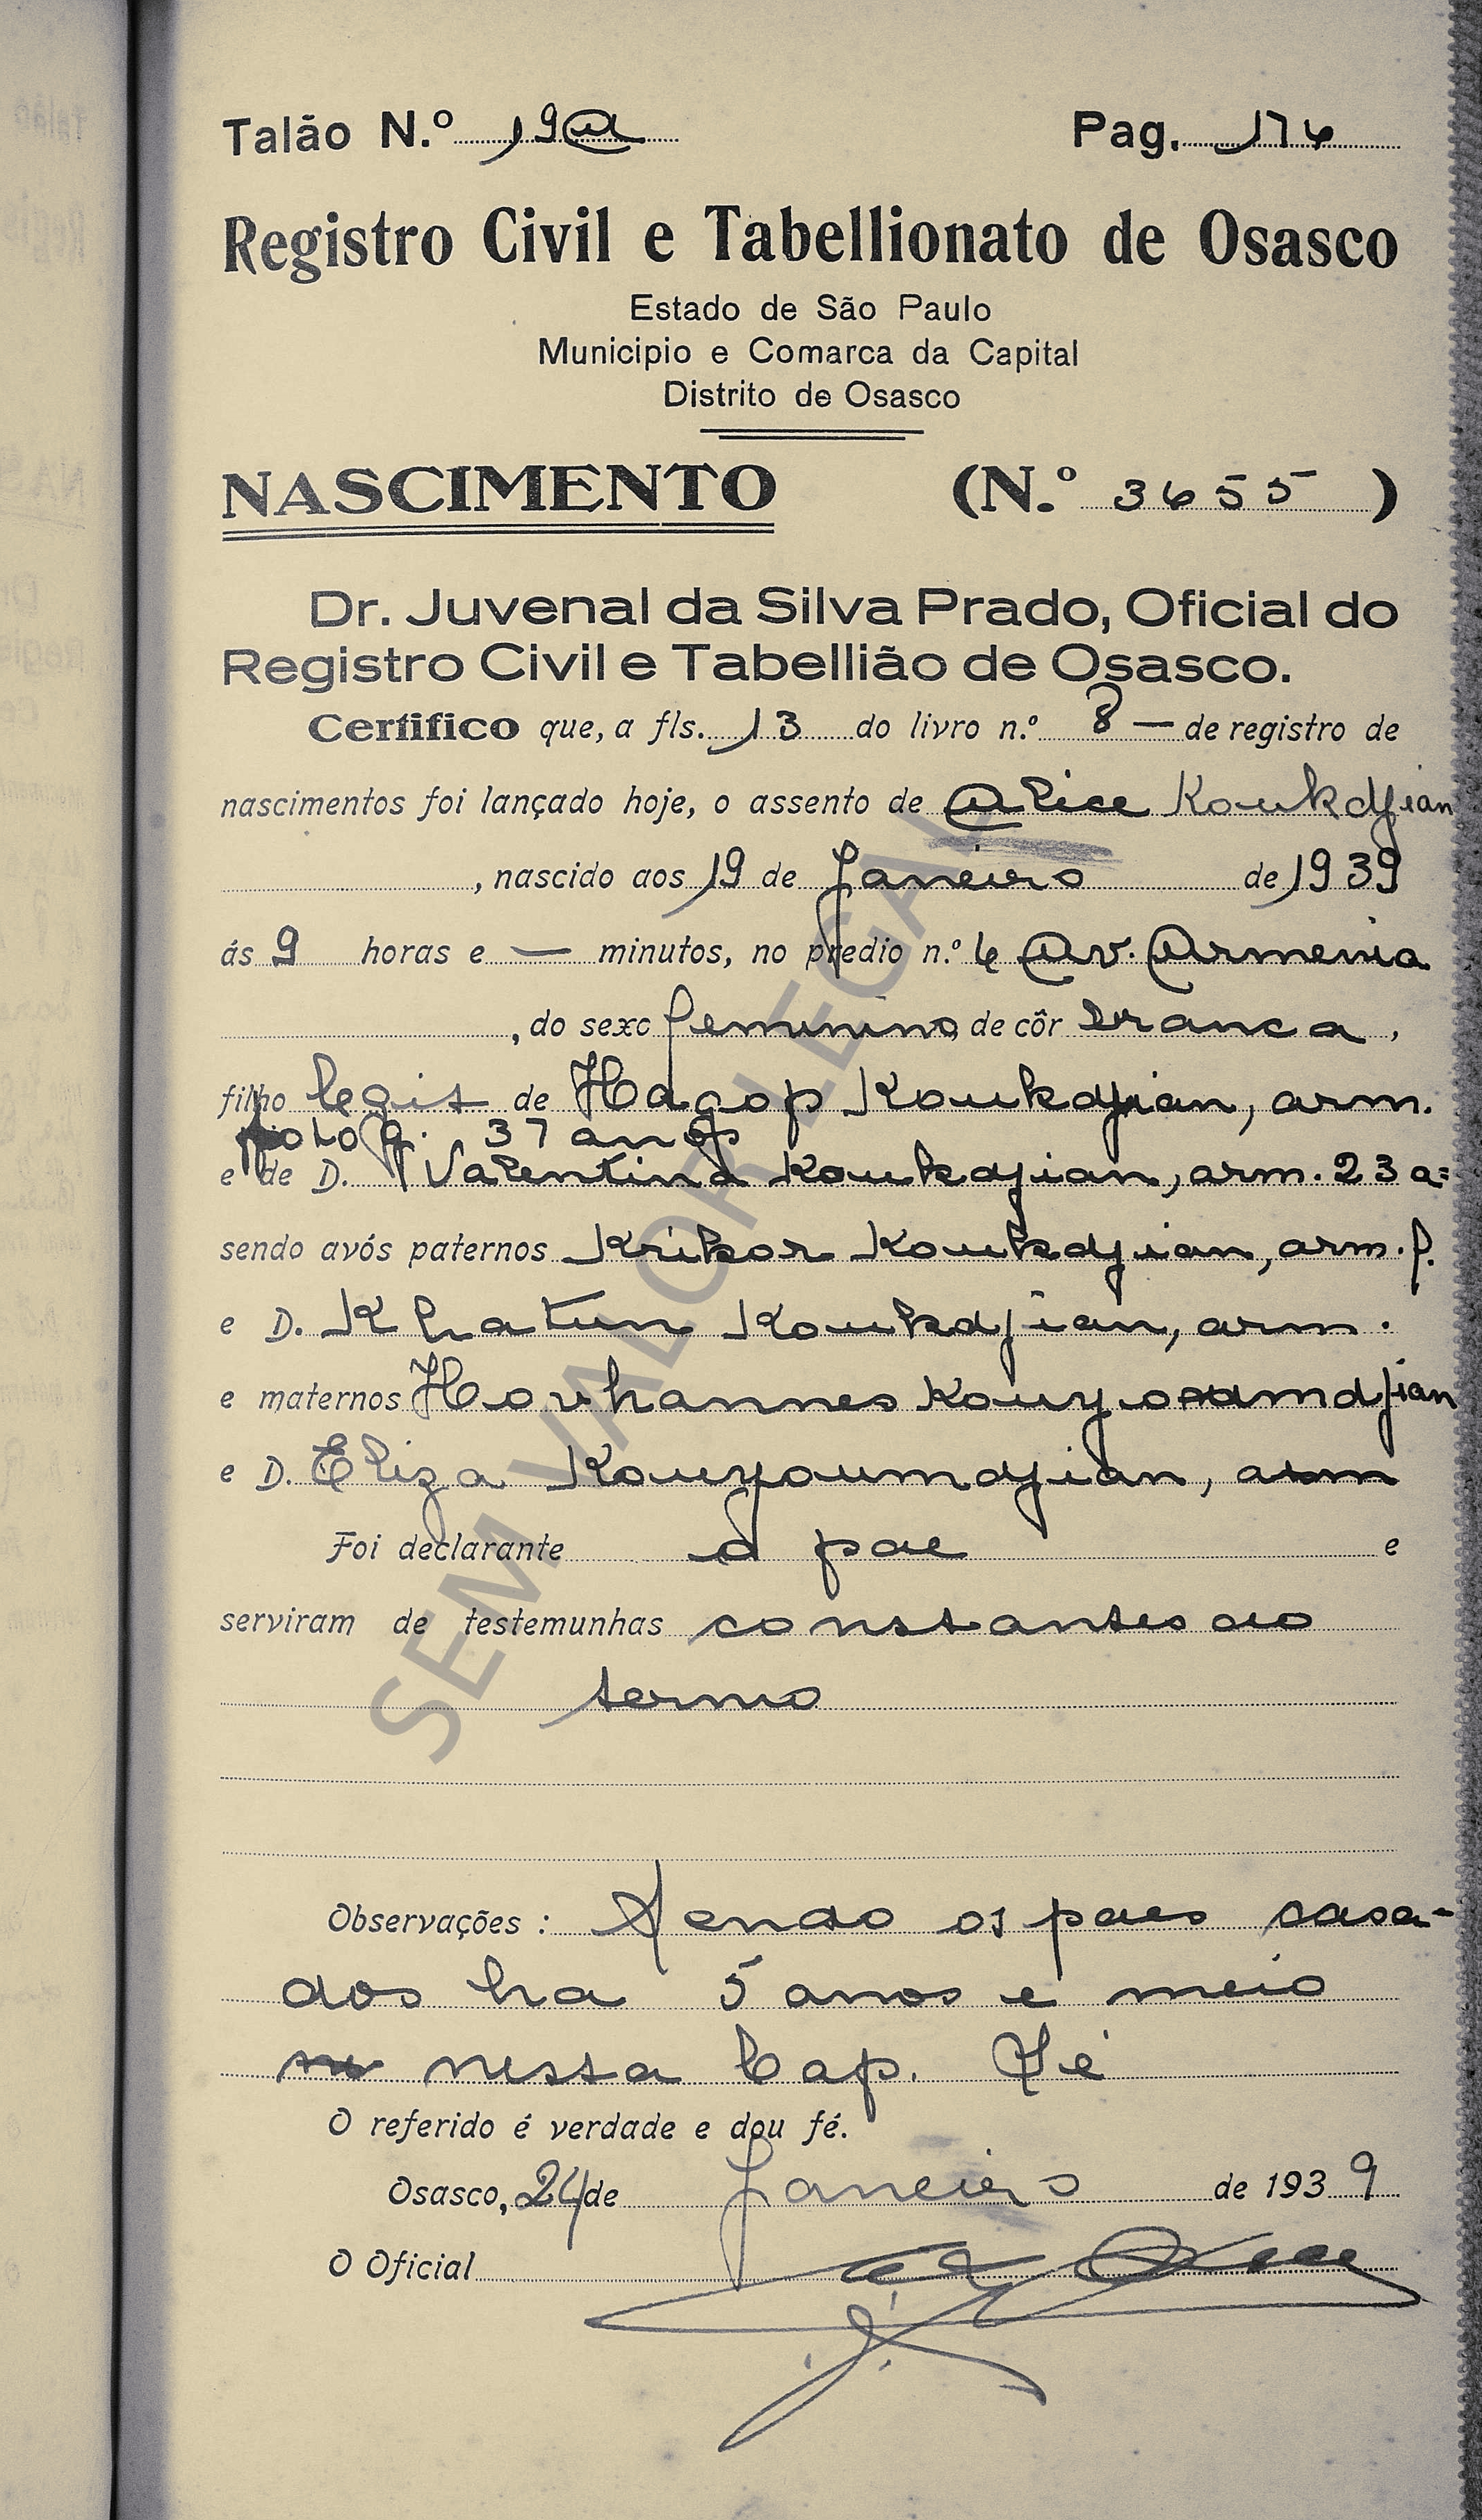 Talão N.º 19A Pag. 176
Registro Civil e Tabellionato de Osasco
Estado de São Paulo
Municipio e Comarca da Capital
Distrito de Osasco
NASCIMENTO (N.º 3655 )
Dr. Juvenal da Silva Prado, Oficial do
Registro Civil e Tabellião de Osasco.
Certifico que, a fls. 13 do livro n.º 8 — de registro de
nascimentos foi lançado hoje, o assento de Alice Koukdjian
, nascido aos 19 de Janeiro de 1939
ás 9 horas e — minutos, no predio n.º 6 Av. Armenia
, do sexo feminino, de côr branca,
filho legit de Hagop Koukdjian, arm.
fotog. 37 anos
e de D. Valentina Koukdjian, arm. 23 a=
sendo avós paternos Krikor Koukdjian, arm. f.
e D. Khatun Koukdjian, arm.
e maternos Hovhannes Kouyoumdjian
e D. Eliza Kouyoumdjian, arm
Foi declarante o pae e
serviram de testemunhas constantes do
termo
Observações : Sendo os paes casa-
dos ha 5 anos e meio
nessa Cap. Sé
O referido é verdade e dou fé.
Osasco, 24 de Janeiro de 1939
O Oficial
SEM VALOR LEGAL